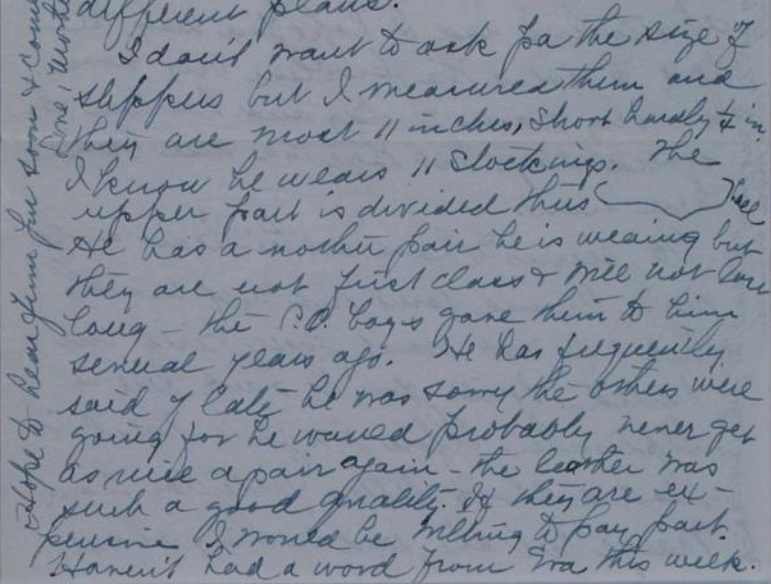 different plans.
I don't want to ask pa the size of
slippers but I measured them and
they are most 11 inches, short hardly ¼ in.
I know he wears 11 stockings. The
upper part is divided thus heel
He has a nother pair he is wearing but
they are not first class & will not last
long – the P.O. boys gave them to him
several years ago. He has frequently
said of late he was sorry the others were
going for he would probably never get
as nice a pair again – the leather was
such a good quality. If they are ex-
pensive I would be willing to pay part.
Haven't had a word from Ira this week.
Hope to hear from you soon & 
Love, Mother